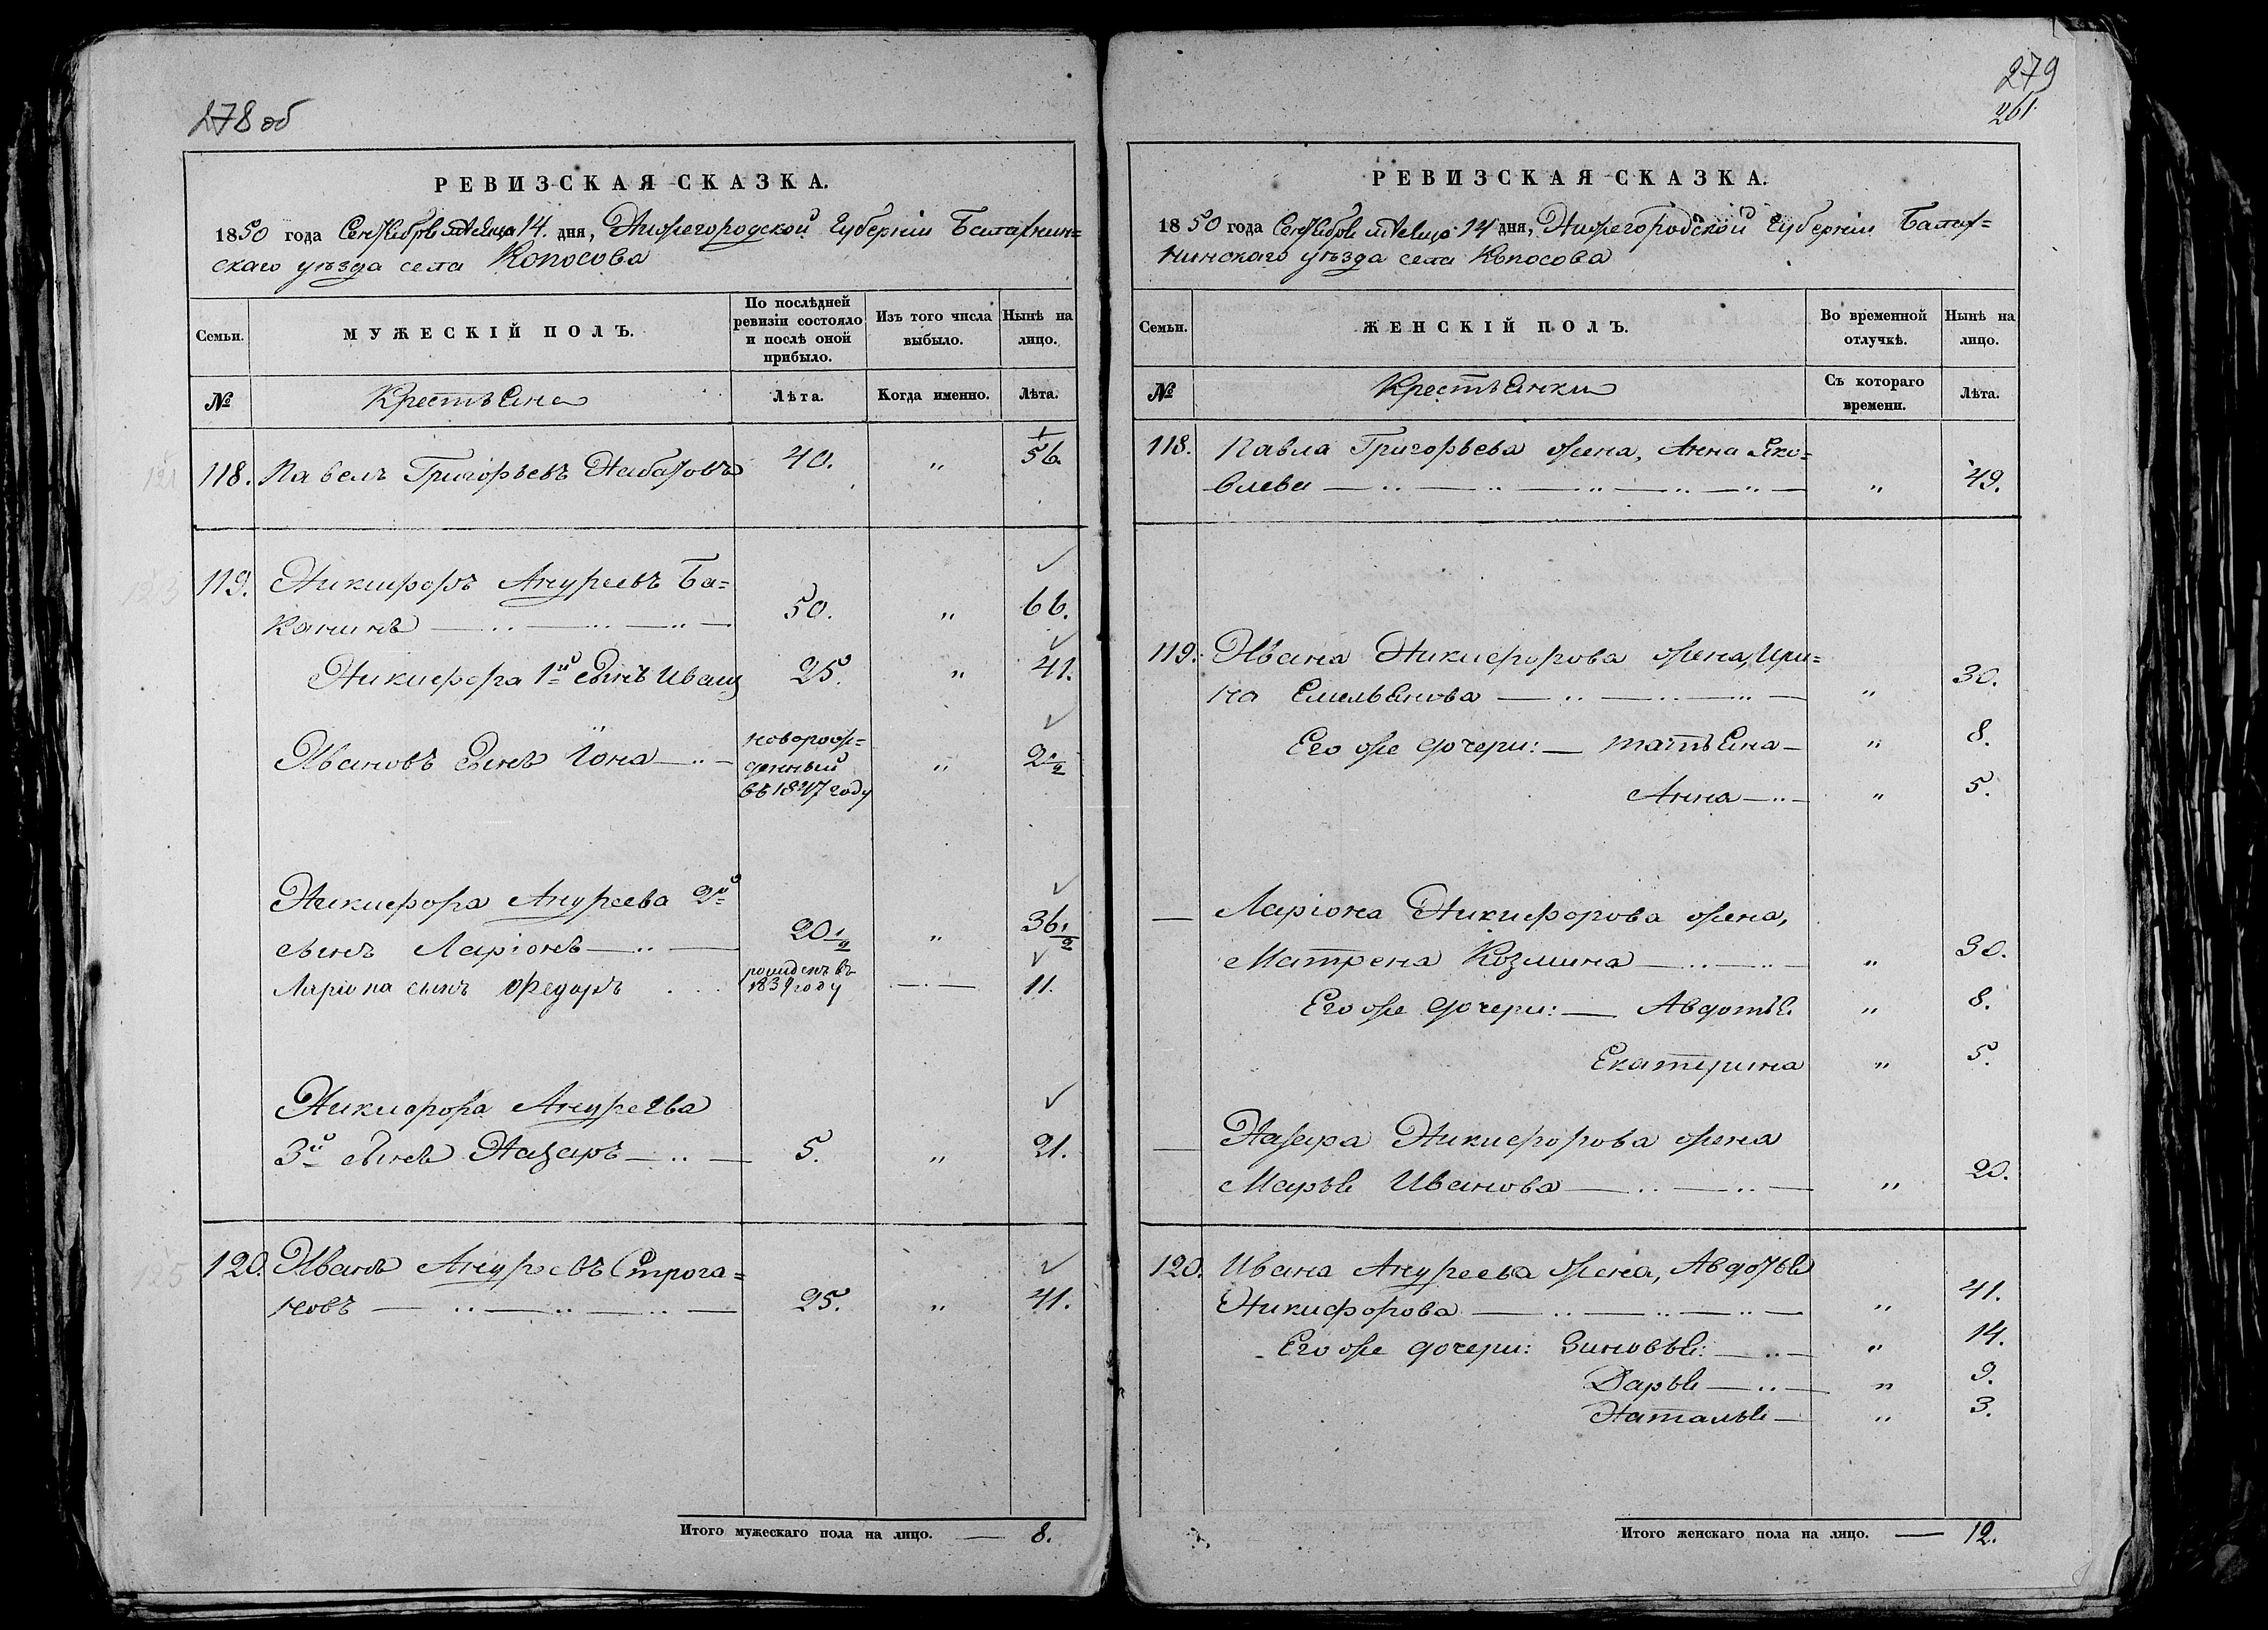 278 об
РЕВИЗСКАЯ СКАЗКА.
1850 года Сентября месяца 14. дня, Нижегородской Губерніи Балахнин=
скаго уѣзда села Копосова
Семьи.
МУЖЕСКІЙ ПОЛЪ.
По послѣдней ревизіи состояло и послѣ оной прибыло.
Изъ того числа выбыло.
Нынѣ на лицо.
№
Крестьяна
Лѣта.
Когда именно.
Лѣта.
118. Павелъ Григорьевъ 40. „ 56.
119. Никифоръ Андреевъ Ба=
канинъ 50. „ 66.
Никифора 1й сынъ Иванъ 25. „ 41.
Ивановъ сынъ Іона новорож=
денный
въ 1847 году „ 2½
Никифора Андреева 2й
сынъ Ларіонъ 20½ „ 36½
Ларіона сынъ Федоръ рожденъ въ
1839 году 11.
Никифора Андреева
3й сынъ Назаръ 5. „ 21.
120. Иванъ Андревъ Строга=
новъ 25. „ 41.
Итого мужескаго пола на лицо. — 8.
279
261.
РЕВИЗСКАЯ СКАЗКА.
1850 года Сентября месяца 14 дня, Нижегородской Губерніи Балах=
нинскаго уѣзда села Копосова
Семьи.
ЖЕНСКІЙ ПОЛЪ.
Во временной отлучкѣ.
Нынѣ на лицо.
№
Крестьянки
Съ котораго времени.
Лѣта.
118. Павла Григорьева жена, Анна Яко=
влева „ 49.
119. Ивана Никифорова жена, Ири=
на Емельянова „ 30.
Его же дочери: — Татьяна „ 8.
Анна „ 5.
— Ларіона Никифорова жена,
Матрена Козмина „ 30.
Его же дочери: — Авдотья „ 8.
Екатерина „ 5.
— Назара Никифорова жена
Марья Иванова „ 20.
120. Ивана Андреева жена, Авдотья
Никифорова „ 41.
Его же дочери: Зиновья: „ 14.
Дарья „ 9.
Наталья „ 3.
Итого женскаго пола на лицо. — 12.